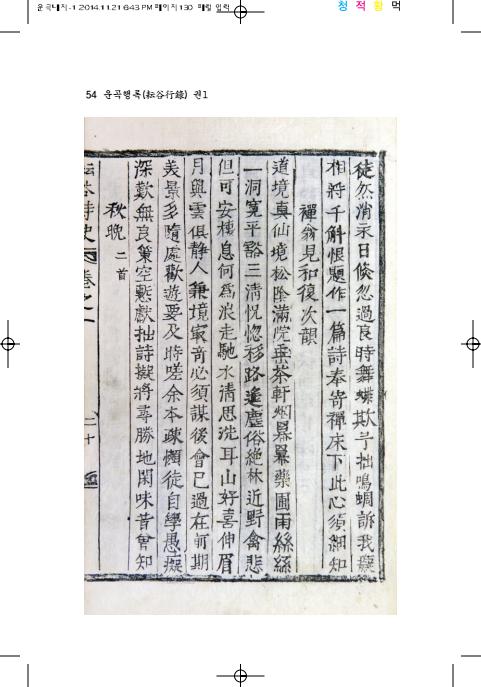 운곡내지-1 2014.11.21 6:43 PM 페이지130
청 적 황 먹
54 운곡행록(耘谷行錄) 권1
徒然消永日倏忽過良時舞蝶欺予拙鳴蜩訴我癡
相將千斛恨題作一篇詩奉寄禪床下此心須細知
禪翁見和復次韻
道境真仙境松陰滿院垂茶軒烟羃羃藥圃雨絲絲
一洞寬平豁三清怳惚移路遙塵俗絶林近野禽悲
但可安棲息何爲浪走馳水清思洗耳山好喜伸眉
月與雲俱静人兼境最奇必須謀後會已過在前期
美景多隨處歡遊要及時嗟余本疎懶徒自學愚癡
深歎無良策空慙獻拙詩擬將尋勝地閑味昔曾知
秋晩 二首
耘谷詩史 卷之一
二十